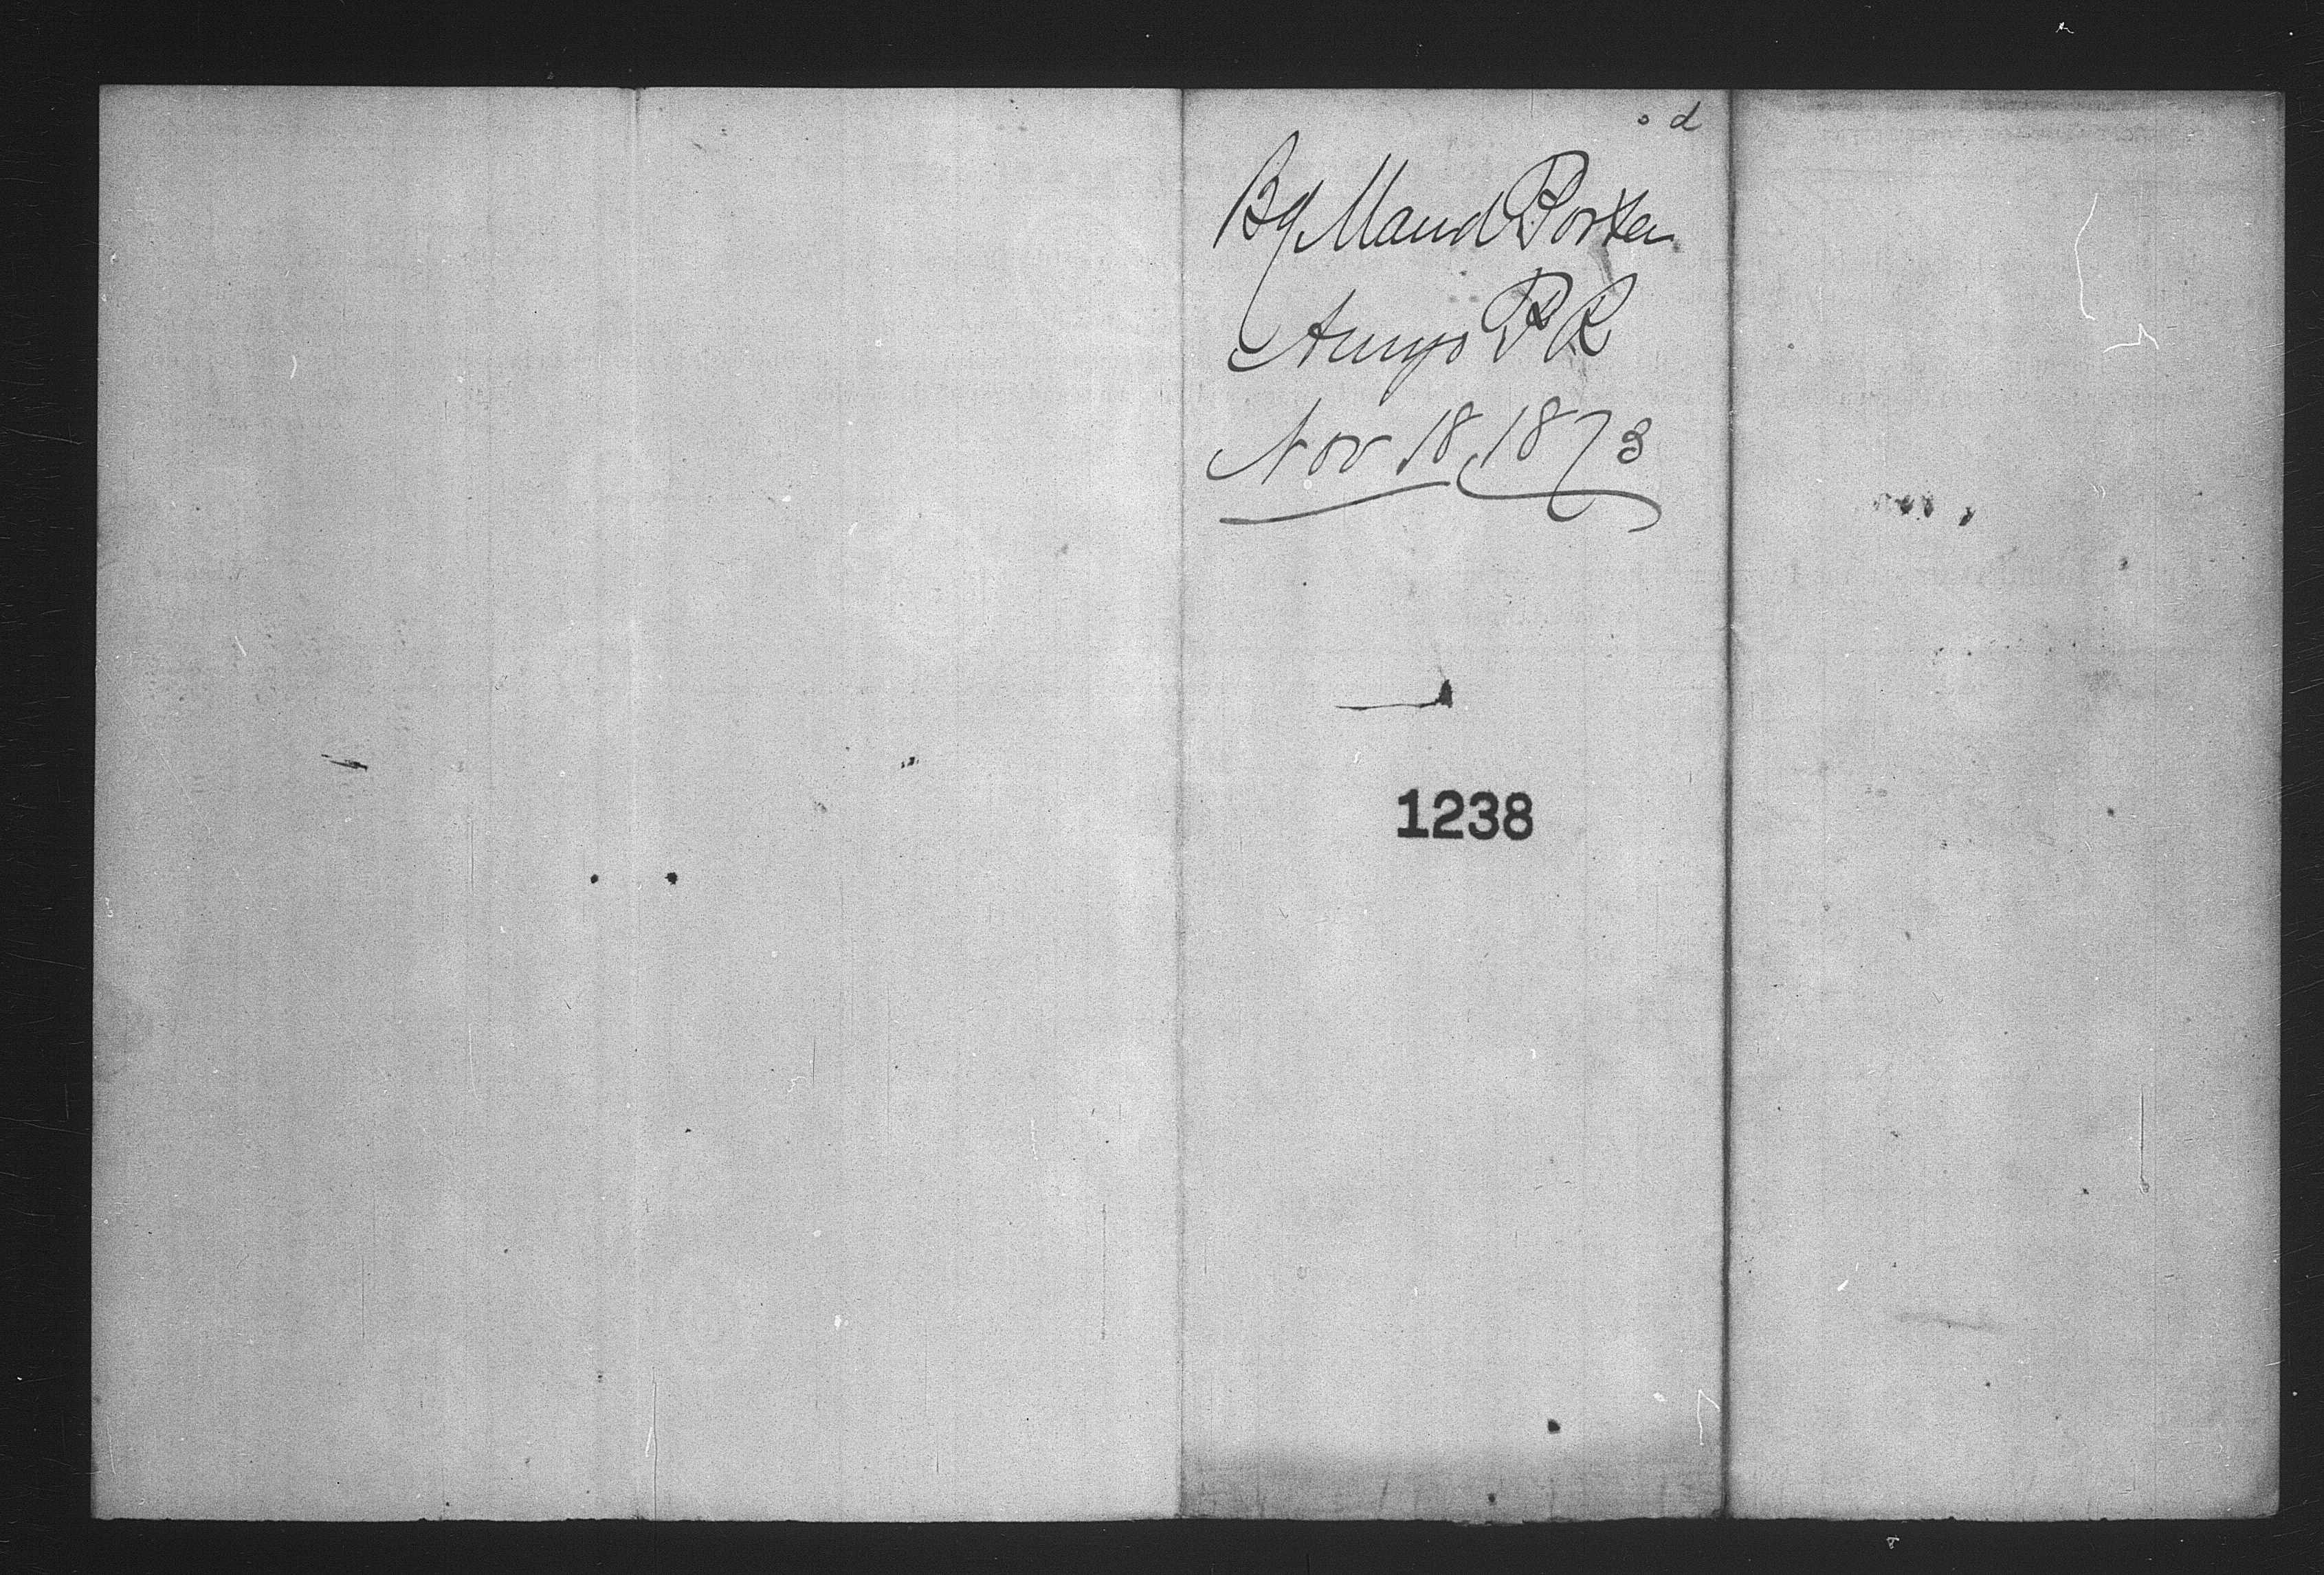 o d
Bg Maud Porter
Anujo P R
Nov 18, 1873
1238